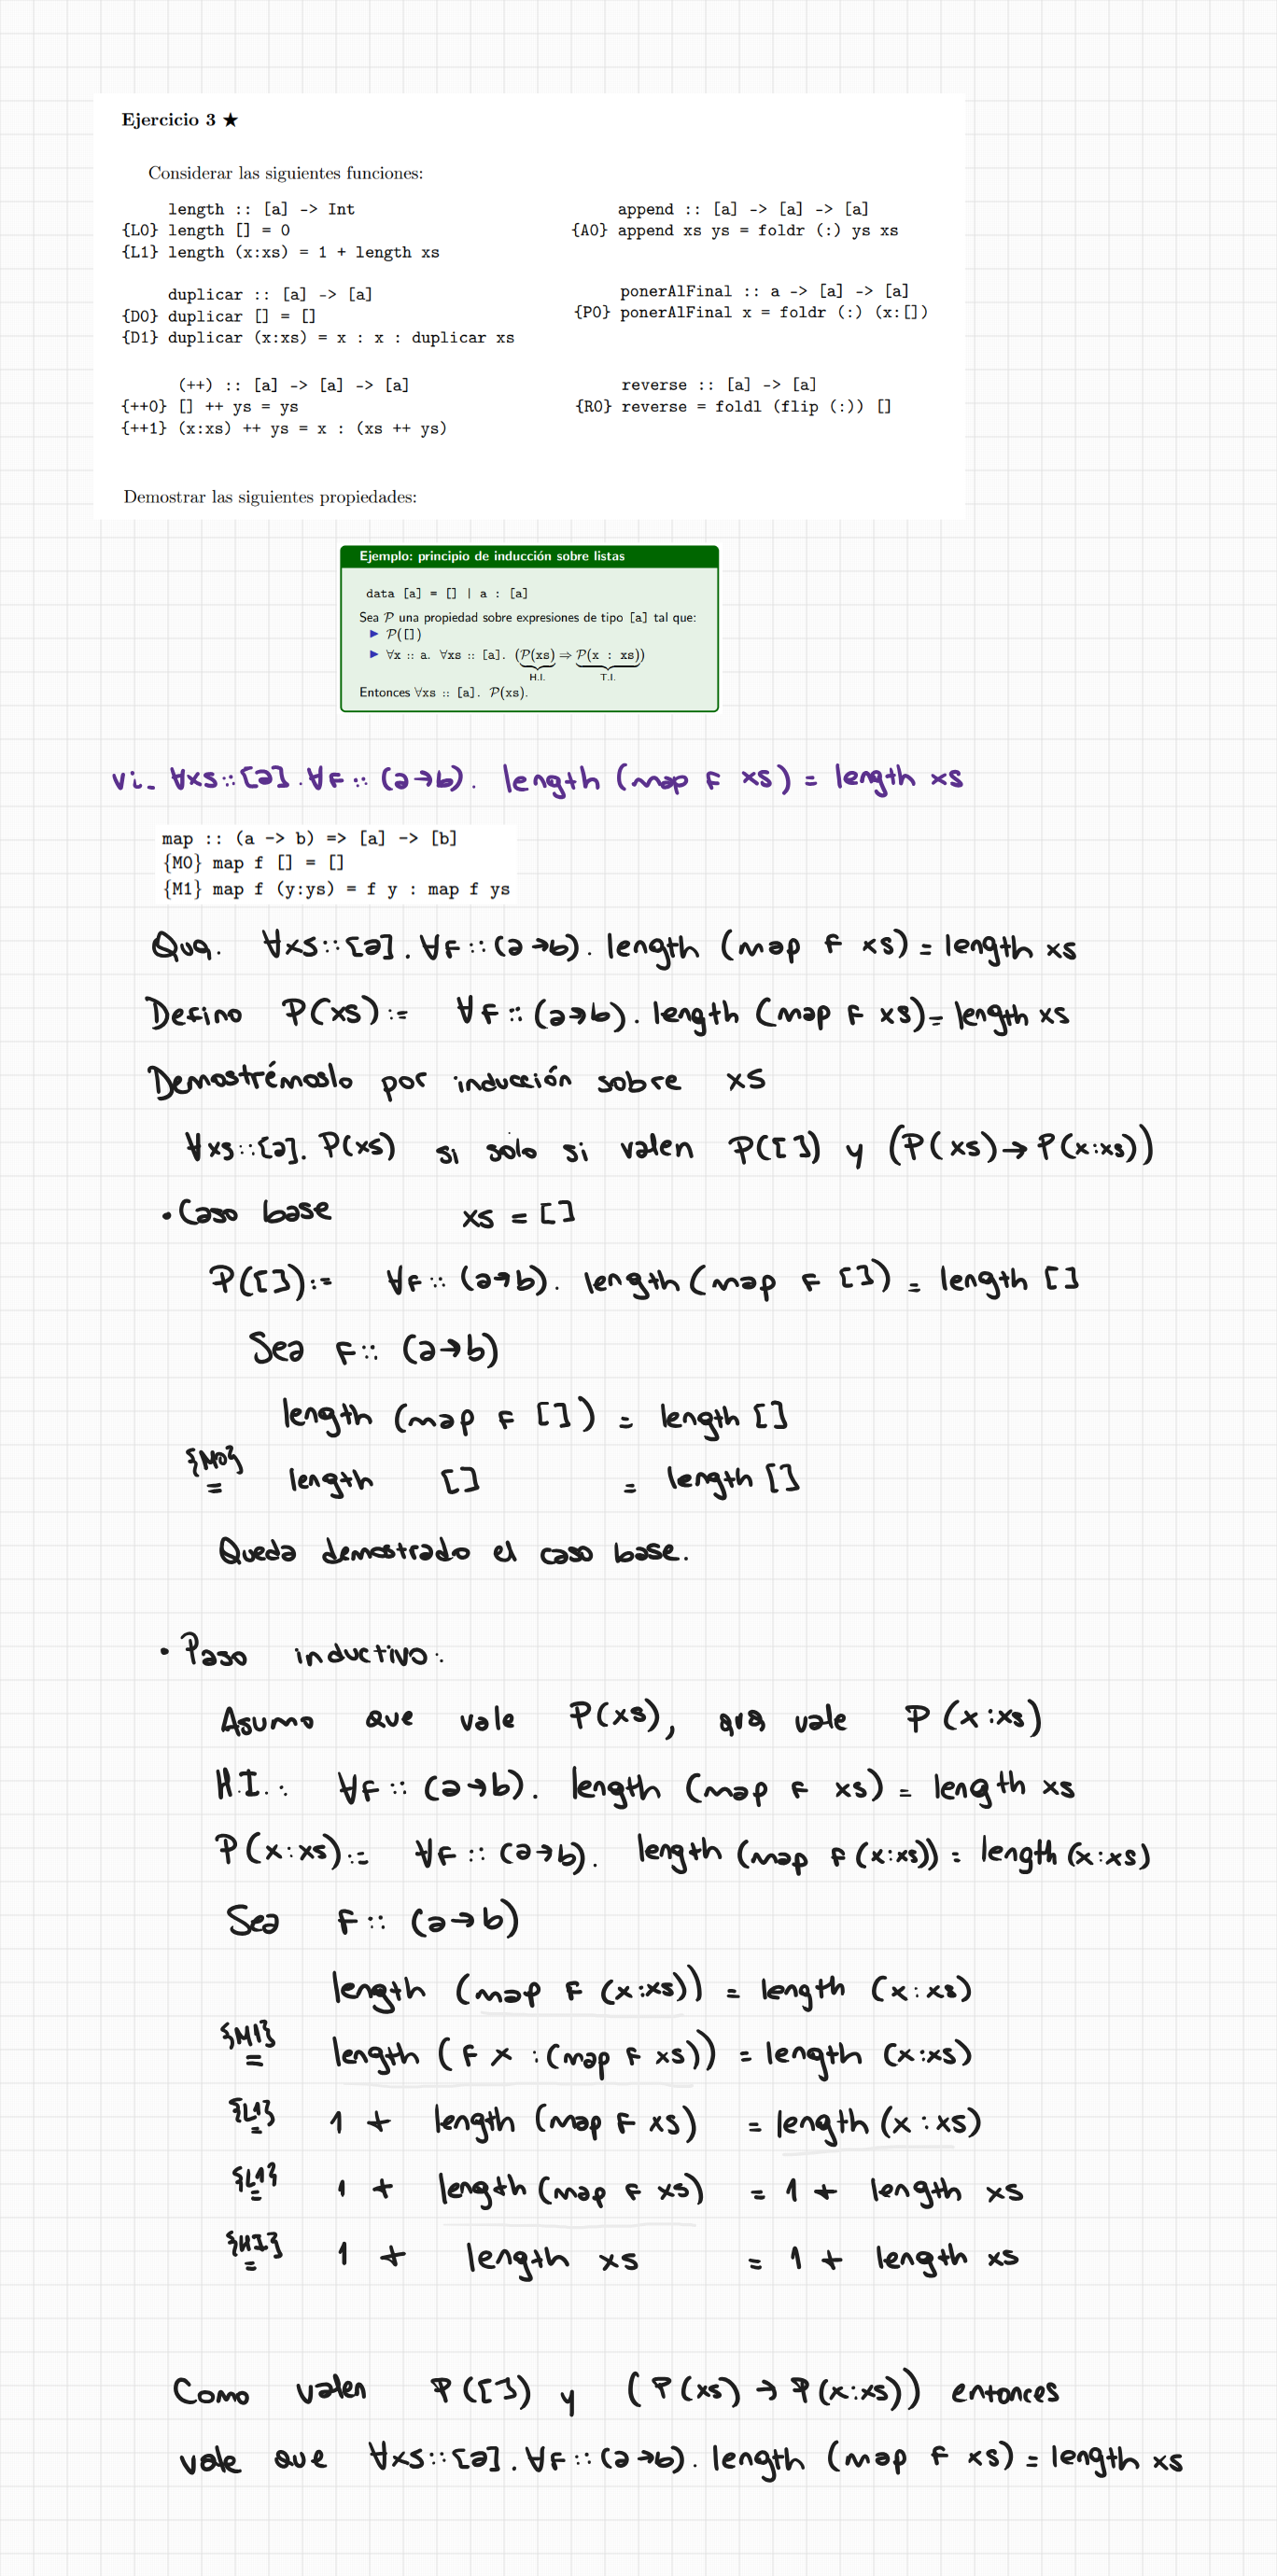 Ejercicio 3 ★
Considerar las siguientes funciones:
length :: [a] -> Int
{L0} length [] = 0
{L1} length (x:xs) = 1 + length xs
append :: [a] -> [a] -> [a]
{A0} append xs ys = foldr (:) ys xs
duplicar :: [a] -> [a]
{D0} duplicar [] = []
{D1} duplicar (x:xs) = x : x : duplicar xs
ponerAlFinal :: a -> [a] -> [a]
{P0} ponerAlFinal x = foldr (:) (x:[])
(++) :: [a] -> [a] -> [a]
{++0} [] ++ ys = ys
{++1} (x:xs) ++ ys = x : (xs ++ ys)
reverse :: [a] -> [a]
{R0} reverse = foldl (flip (:)) []
Demostrar las siguientes propiedades:
Ejemplo: principio de inducción sobre listas
data [a] = [] | a : [a]
Sea P una propiedad sobre expresiones de tipo [a] tal que:
► P([])
► ∀x :: a. ∀xs :: [a]. (P(xs) ⇒ P(x : xs))
H.I. T.I.
Entonces ∀xs :: [a]. P(xs).
vi. ∀xs::[a].∀F::(a→b). length (map F xs) = length xs
map :: (a -> b) => [a] -> [b]
{M0} map f [] = []
{M1} map f (y:ys) = f y : map f ys
Qvq. ∀xs::[a].∀F::(a→b). length (map F xs) = length xs
Defino P(xs):= ∀F::(a→b). length (map F xs) = length xs
Demostrémoslo por inducción sobre xs
∀xs::[a]. P(xs) si solo si valen P([]) y (P(xs)→P(x:xs))
• Caso base xs = []
P([]):= ∀F::(a→b). length (map F []) = length []
Sea F::(a→b)
length (map F []) = length []
{M0} = length [] = length []
Queda demostrado el caso base.
• Paso inductivo:
Asumo que vale P(xs), qvq vale P(x:xs)
H.I.: ∀F::(a→b). length (map F xs) = length xs
P(x:xs):= ∀F::(a→b). length (map F (x:xs)) = length (x:xs)
Sea F::(a→b)
length (map F (x:xs)) = length (x:xs)
{M1} = length (F x : (map F xs)) = length (x:xs)
{L1} = 1 + length (map F xs) = length (x:xs)
{L1} = 1 + length (map F xs) = 1 + length xs
{HI} = 1 + length xs = 1 + length xs
Como valen P([]) y (P(xs)→P(x:xs)) entonces
vale que ∀xs::[a].∀F::(a→b). length (map F xs) = length xs